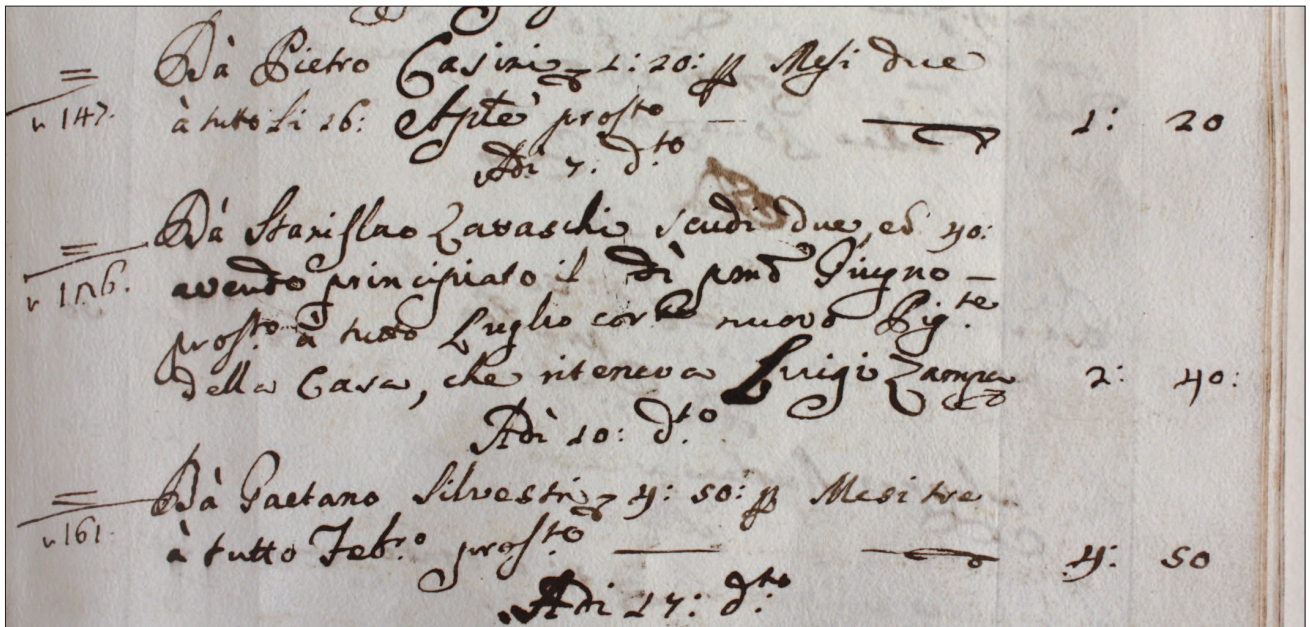 Dà Pietro Casini 1: 20: p Mesi due
v 147.
à tutto li 26: Aple prosto 1: 20
Adì 7. dto
Dà Stanislao Zavaschi scudi due, ed 40:
avendo principiato il dì pmo Giugno
prosto à tutto Luglio corte nuovo Pigte
della Casa, che riteneva Luigi Zampa 2: 40:
Adì 10: dto
Dà Gaetano Silvestri 4: 50: p Mesi tre
v 161.
à tutto Febro prosto 4: 50
Adì 17: dto